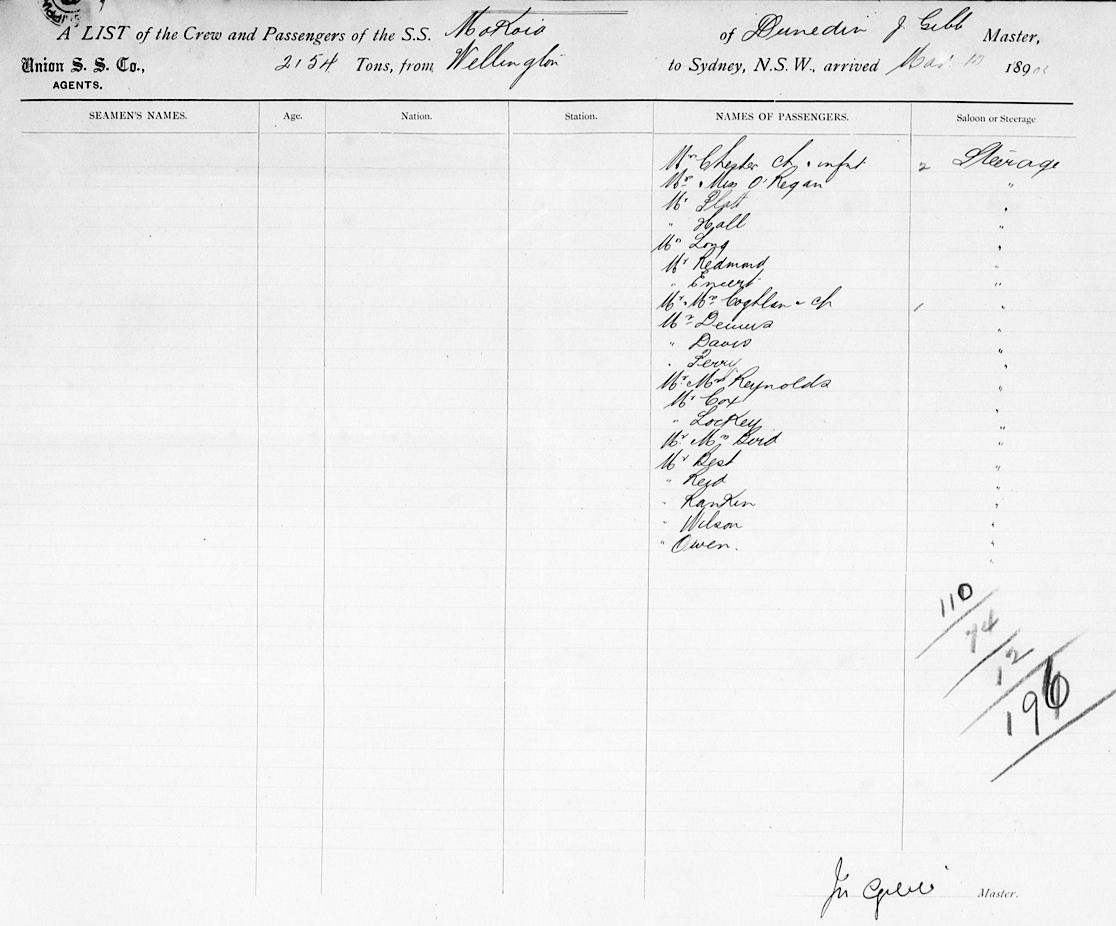 A LIST of the Crew and Passengers of the S.S. Mokoia of Dunedin J Gibb Master,
Union S. S. Co., 2154 Tons, from Wellington to Sydney, N.S.W., arrived Mar 189
AGENTS.
SEAMEN'S NAMES. Age. Nation. Station. NAMES OF PASSENGERS. Saloon or Steerage
Mrs Chester ch & infnt 2 Steerage
& Miss O'Regan "
Mr "
" Hall "
Long "
Mr Redmond "
" "
Mr & Mrs Coghlan & ch 1 "
Mr "
" Davis "
" Ferry "
Mr Mrs Reynolds "
Mr Cox "
" Lockey "
Mr Mrs "
Mr Best "
" Reid "
" Rankin "
" Wilson "
" Owen. "
110
74
12
196
Jn Gibb Master.